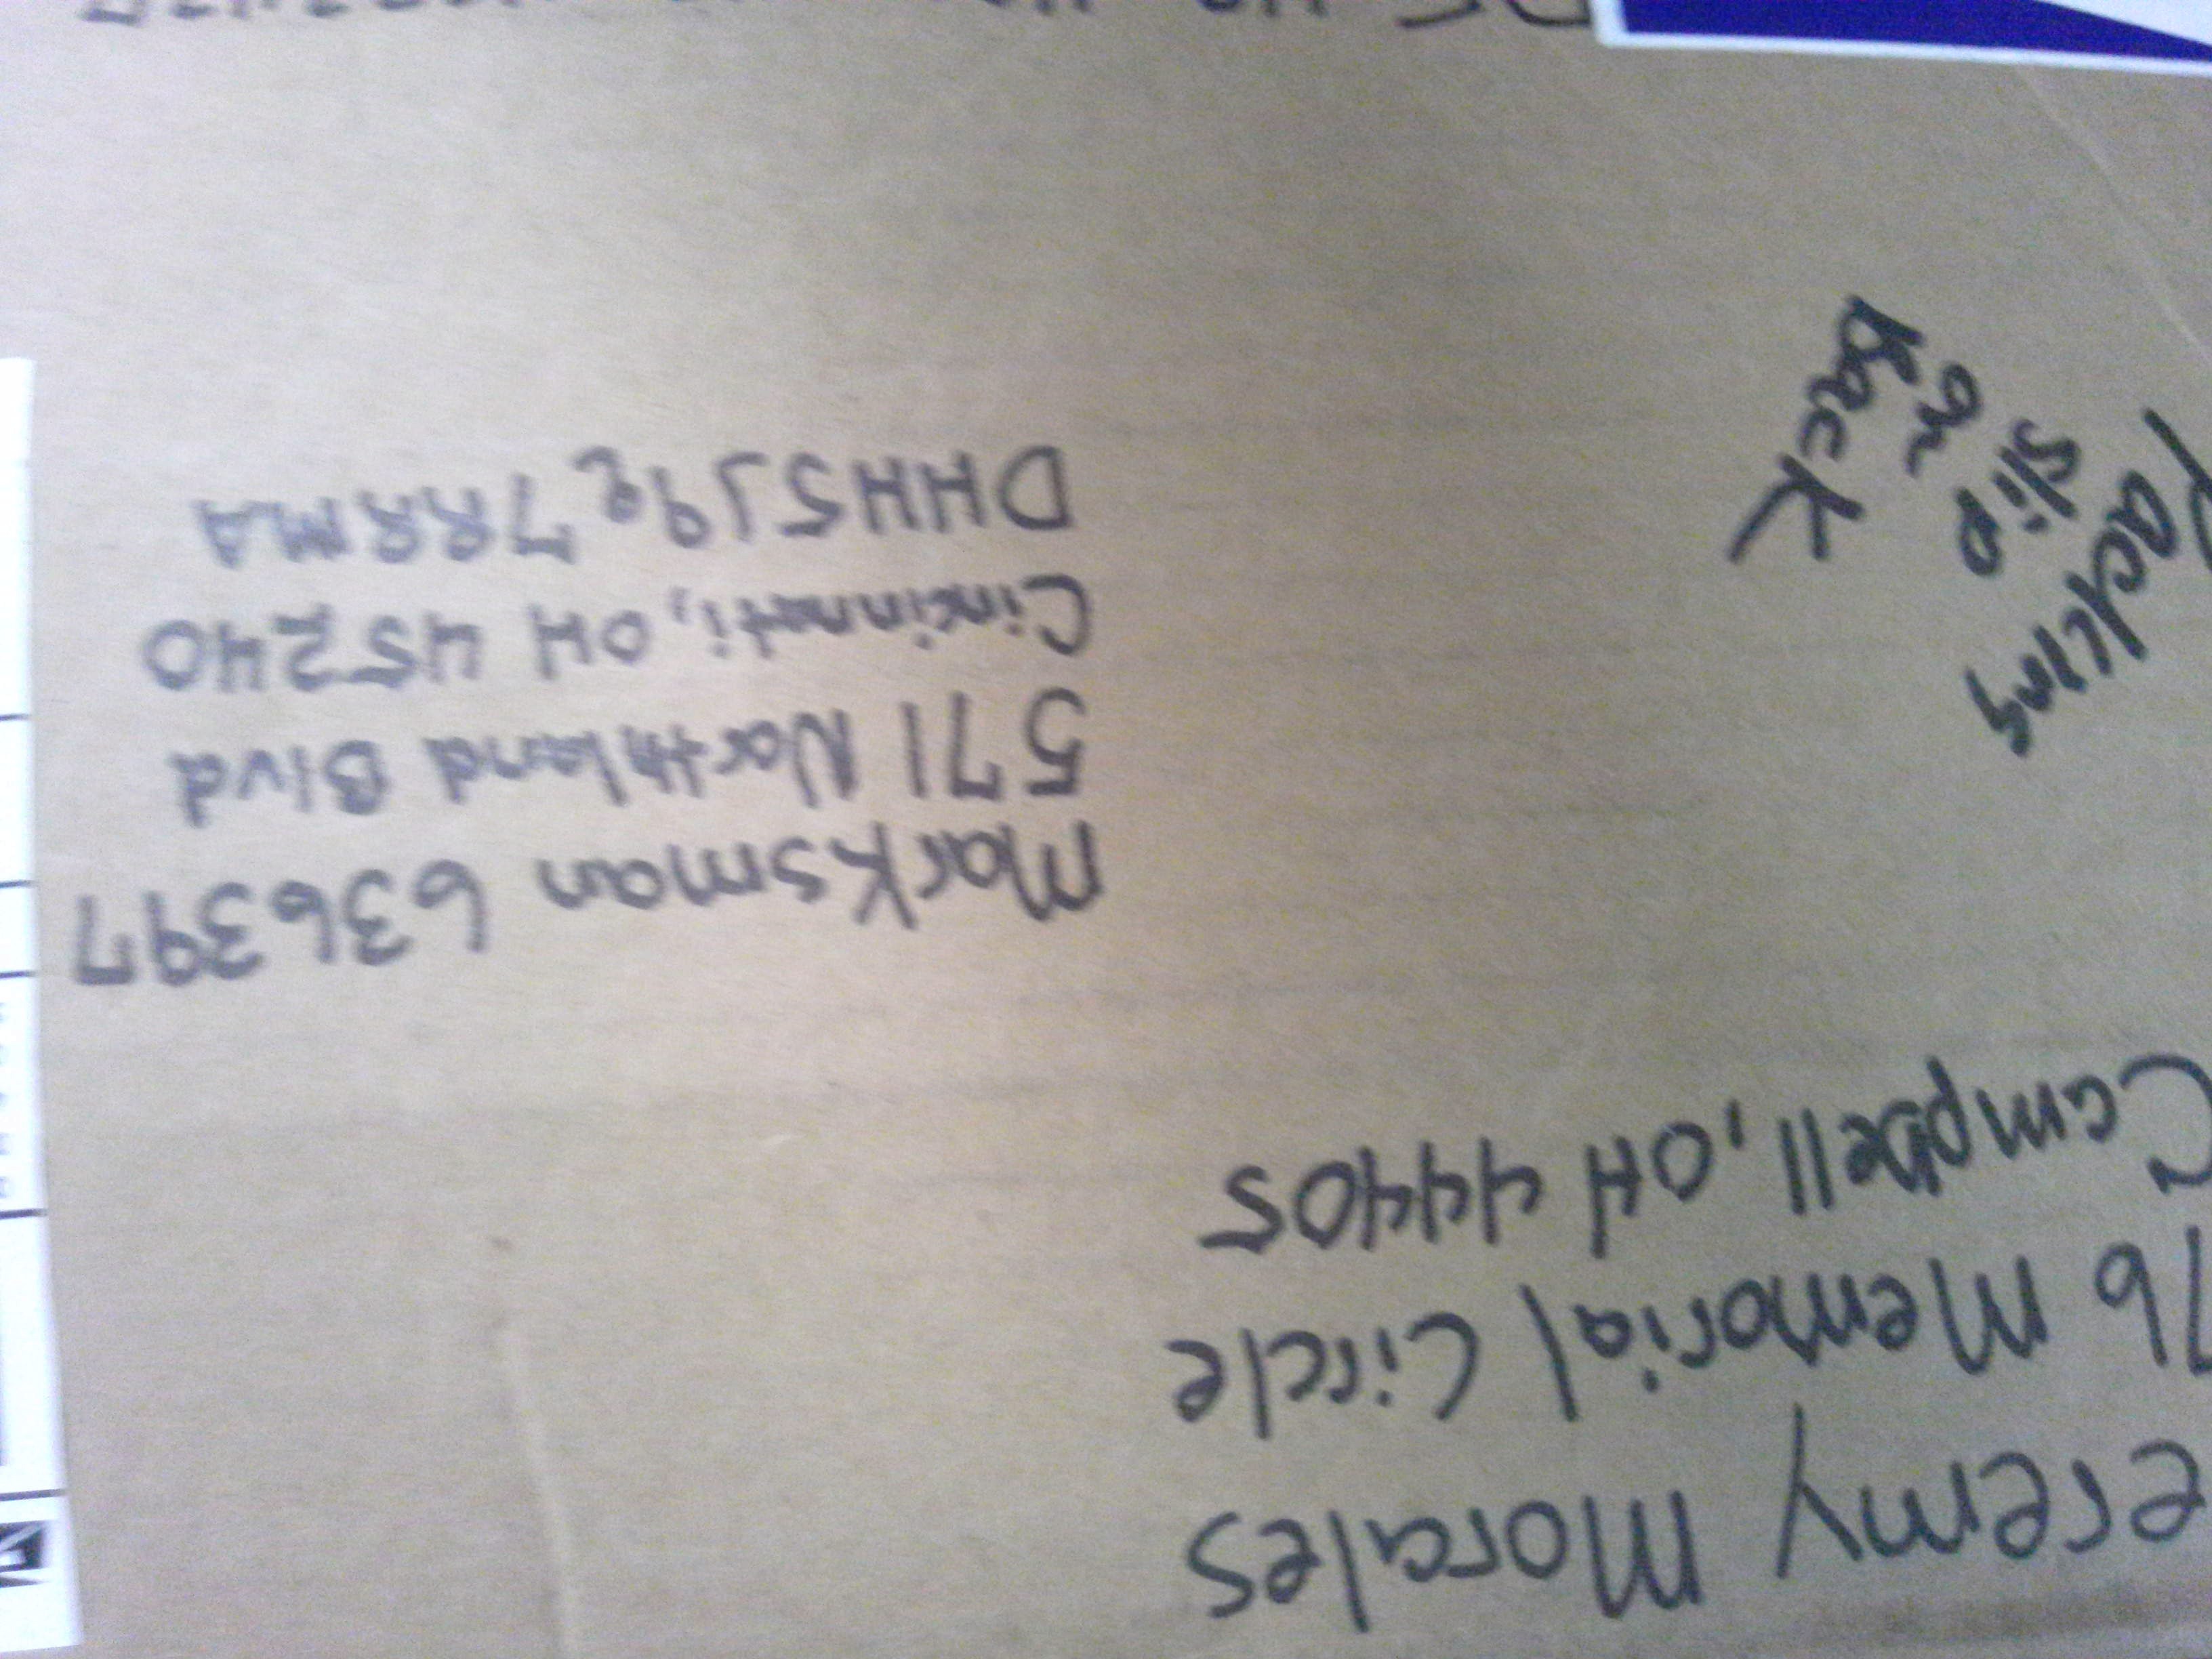 eremy Morales
76 Memorial Circle
Campbell, OH 44405
Marksman 636397
571 Northland Blvd
Cincinnati, OH 45240
DHH5J9e7RRMA
Packing
slip
on
Back